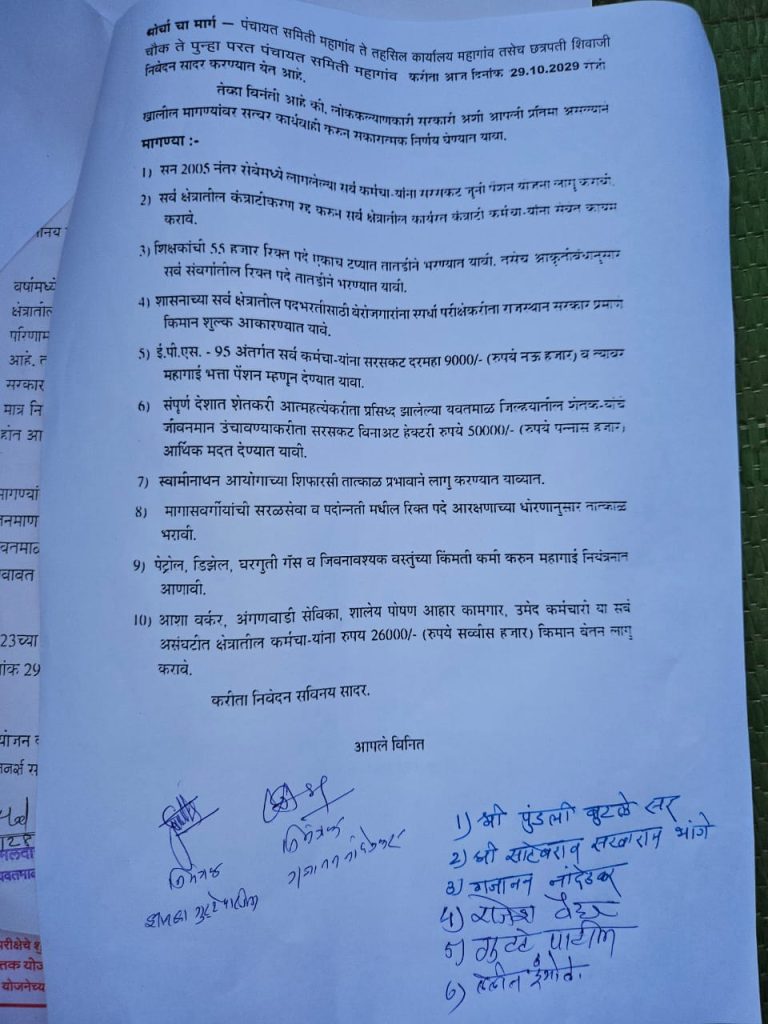 मोर्चा चा मार्ग – पंचायत समिती महागांव ते तहसिल कार्यालय महागांव तसेच छत्रपती शिवाजी
चौक ते पुन्हा परत पंचायत समिती महागांव करीता आज दिनांक 29.10.2029 रोजी
निवेदन सादर करण्यात येत आहे.
तेव्हा विनंती आहे की, लोककल्याणकारी सरकारी अशी आपली प्रतिमा असल्याने
खालील मागण्यांवर सत्वर कार्यवाही करुन सकारात्मक निर्णय घेण्यात यावा.
मागण्या :-
1) सन 2005 नंतर सेवेमध्ये लागलेल्या सर्व कर्मचा-यांना सरसकट जुनी पेंशन योजना लागू करावी.
2) सर्व क्षेत्रातील कंत्राटीकरण रद्द करुन सर्व क्षेत्रातील कार्यरत कंत्राटी कर्मचा-यांना सेवेत कायम
करावे.
3) शिक्षकांची 55 हजार रिक्त पदे एकाच टप्यात तातडीने भरण्यात यावी. तसेच आकृतीबंधानुसार
सर्व संवर्गातील रिक्त पदे तातडीने भरण्यात यावी.
4) शासनाच्या सर्व क्षेत्रातील पदभरतीसाठी बेरोजगारांना स्पर्धा परीक्षेकरीता राजस्थान सरकार प्रमाणे
किमान शुल्क आकारण्यात यावे.
5) ई.पी.एस. - 95 अंतर्गत सर्व कर्मचा-यांना सरसकट दरमहा 9000/- (रुपये नऊ हजार) व त्यावर
महागाई भत्ता पेंशन म्हणून देण्यात यावा.
6) संपूर्ण देशात शेतकरी आत्महत्येकरीता प्रसिध्द झालेल्या यवतमाळ जिल्हयातील शेतक-यांचे
जीवनमान उंचावण्याकरीता सरसकट विनाअट हेक्टरी रुपये 50000/- (रुपये पन्नास हजार)
आर्थिक मदत देण्यात यावी.
7) स्वामीनाथन आयोगाच्या शिफारसी तात्काळ प्रभावाने लागु करण्यात याव्यात.
8) मागासवर्गीयांची सरळसेवा व पदोन्नती मधील रिक्त पदे आरक्षणाच्या धोरणानुसार तात्काळ
भरावी.
9) पेट्रोल, डिझेल, घरगुती गॅस व जिवनावश्यक वस्तुंच्या किंमती कमी करुन महागाई नियंत्रनात
आणावी.
10) आशा वर्कर, अंगणवाडी सेविका, शालेय पोषण आहार कामगार, उमेद कर्मचारी या सर्व
असंघटीत क्षेत्रातील कर्मचा-यांना रुपये 26000/- (रुपये सव्वीस हजार) किमान वेतन लागु
करावे.
करीता निवेदन सविनय सादर.
आपले विनित
निमंत्रक
निमंत्रक
गजानन नांदेडकर
1) श्री पुंडली बुटले सर
2) श्री साहेबराव सखाराम भांगे
3) गजानन नांदेडकर
4) राजेश
5) गुट्टे पाटील
6)
वर्षामध्ये
क्षेत्रातील
परिणाम
आहे. त
सरकार
मात्र नि
होत आ
मागण्यां
23च्या
ांक 29
परीक्षेचे शु
योजनेच्य